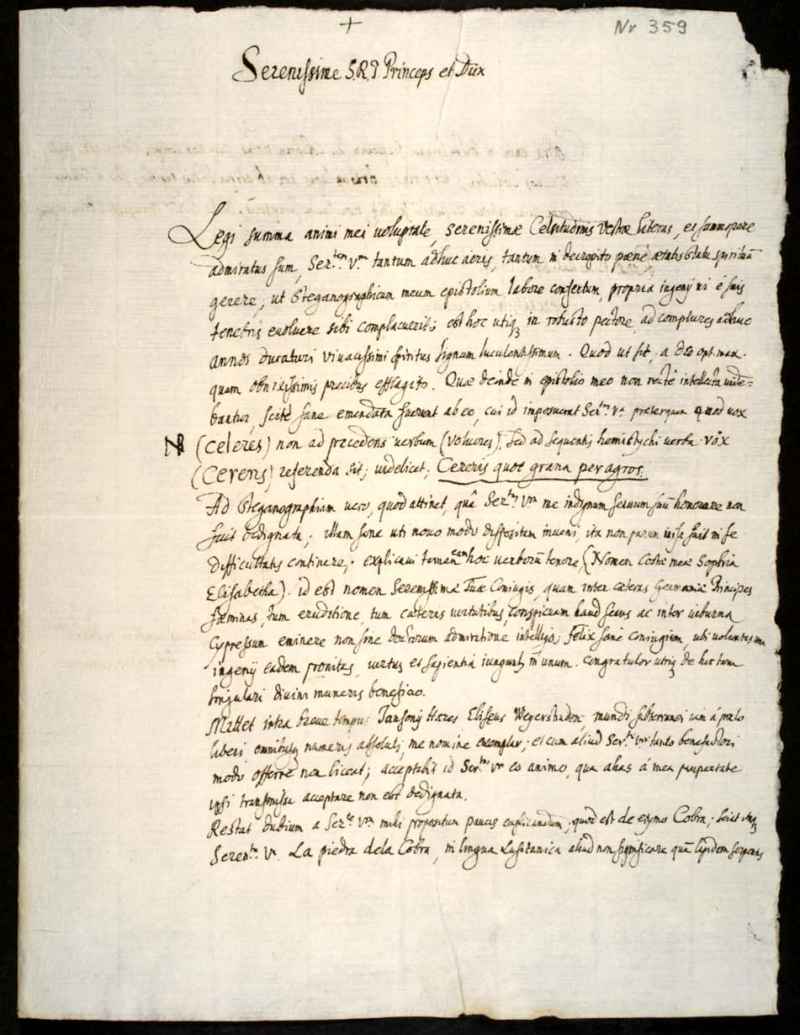 +
Nr 359
Serenissime S.R.I Princeps et Dux
Legi summa animi mei voluptate, serenissimæ Celsitudinis Vestræ literas, et summopere
admiratus sum, Ser.tem Vm tantum adhuc æris, tantum in decrepito pæne ætatis statu spirituũ
gerere, ut Steganographicum meum epistolium labore confertum, propria ingenij vi è suis
tenebris evoluere sibi complacuerit; est hoc utiq; in robusto pectore ad complures adhuc
annos duraturi vivacissimi spiritus signum luculentissimum. Quod ut sit, a Deo opt. max.
quam obnixissimis precibus efflagito. Quæ deinde in epistolio meo non rectè intellecta vide-
bantur, scitè sane emendata fuerunt ab eo, cui id imposuerat Ser.tas Va præterquam quod vox
(Celeres) non ad præcedens verbum (volucres), sed ad sequentis hemistychi verba vox
(Cereris) referenda sit; videlicet, Cereris quot grana per agros.
Ad Steganographiam vero, quod attinet, quâ Ser.tas Vra me indignum servum suũ honorare non
fuit dedignata; illam sane uti novo modo dispositam inveni, ita non parum visa fuit in se
difficultatis continere; explicavi tamen eam hoc verborũ tenore, (Nomen Costæ meæ Sophia
Elisabetha). id est nomen Serenissimæ Tuæ Coniugis, quam inter cæteras Germaniæ Principes
fæminas, tum eruditione, tum cæteris virtutibus conspicuam haud secus ac inter viburna
Cypressum eminere non sine doctorum admiratione intelligo; felix sane coniugium, ubi voluntatum
ingenij eadem pronitas, virtus et sapientia in unum. congratulor utriq; de hoc tam
singulari divini muneris beneficio.
Mittet intra breve tempus Jansonij Hæres Eliseus Weyerstraten mundi subterranei iam á prælo
liberi omnibusq; numeris absoluti, meo nomine exemplar; et cum aliud Ser.ti Vræ tanto benefactori
modo offerre non liceat; acceptabit id Ser.tas Vra eo animo, quo alias á mea paupertate
ipsi transmissa acceptare non est dedignata.
Restat dubium a Ser.te Vra mihi propositum paucis explicandum, quod est de etymo Cobra; sciat itaq;
Seren.tas Va La piedra dela Cobra, in lingua Lusitanica aliud non significare quã lapidem serpentis